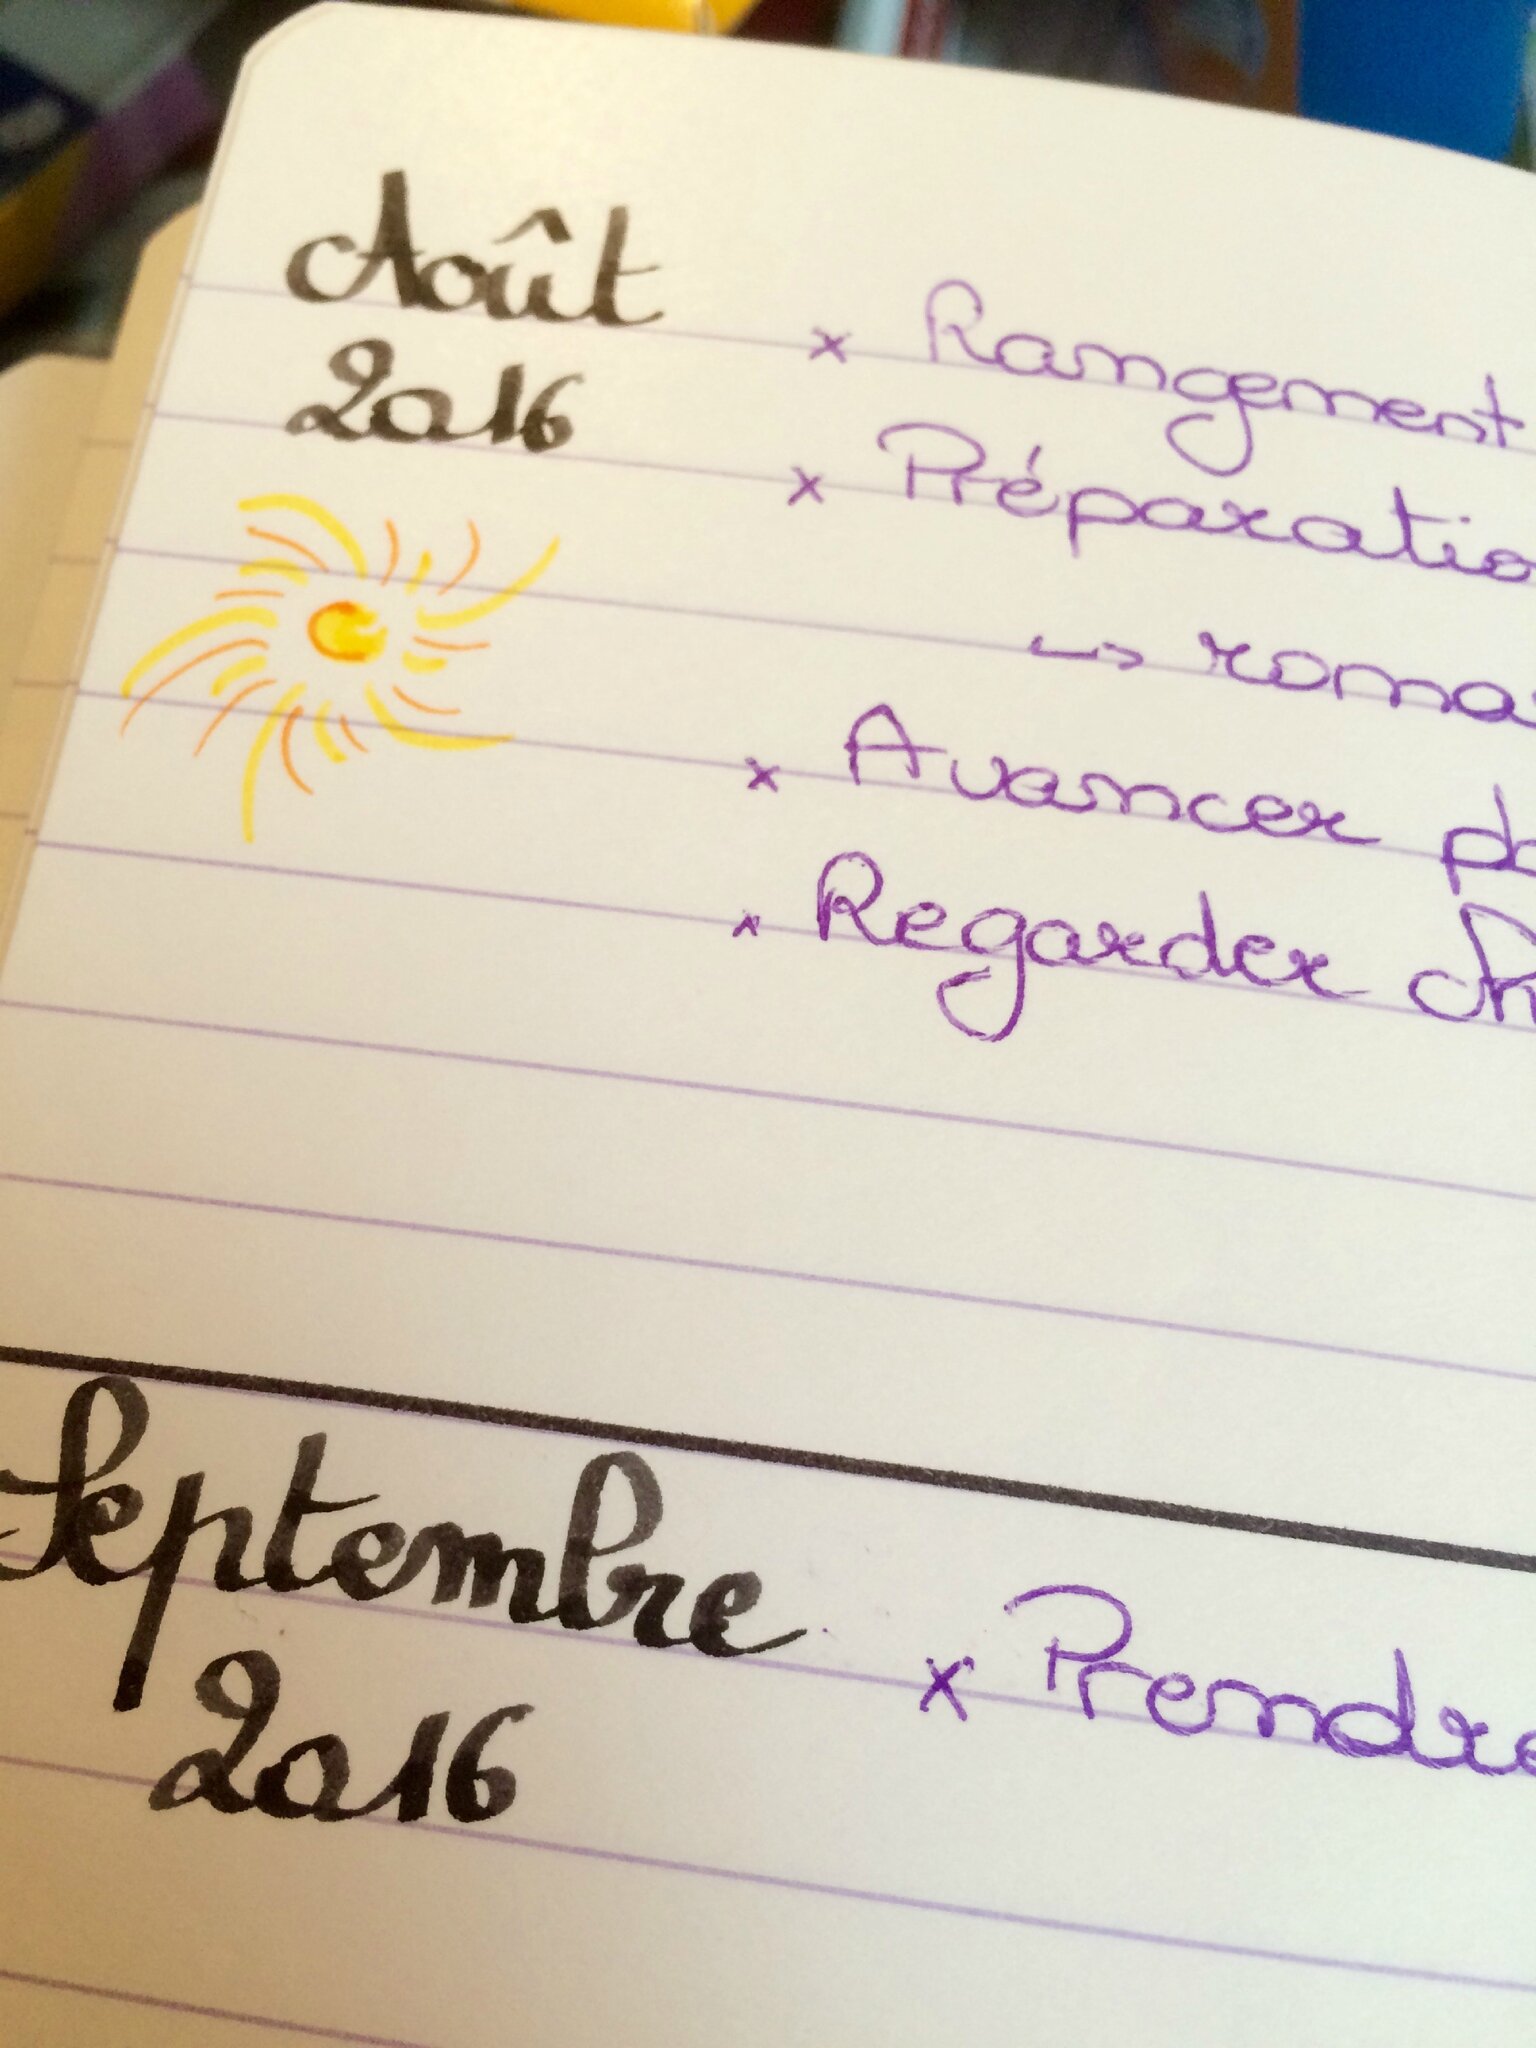 Août
2016
x Rangement
x Préparatio
↳ roma
x Avancer pa
x Regarder
Septembre
2016
x Prendre